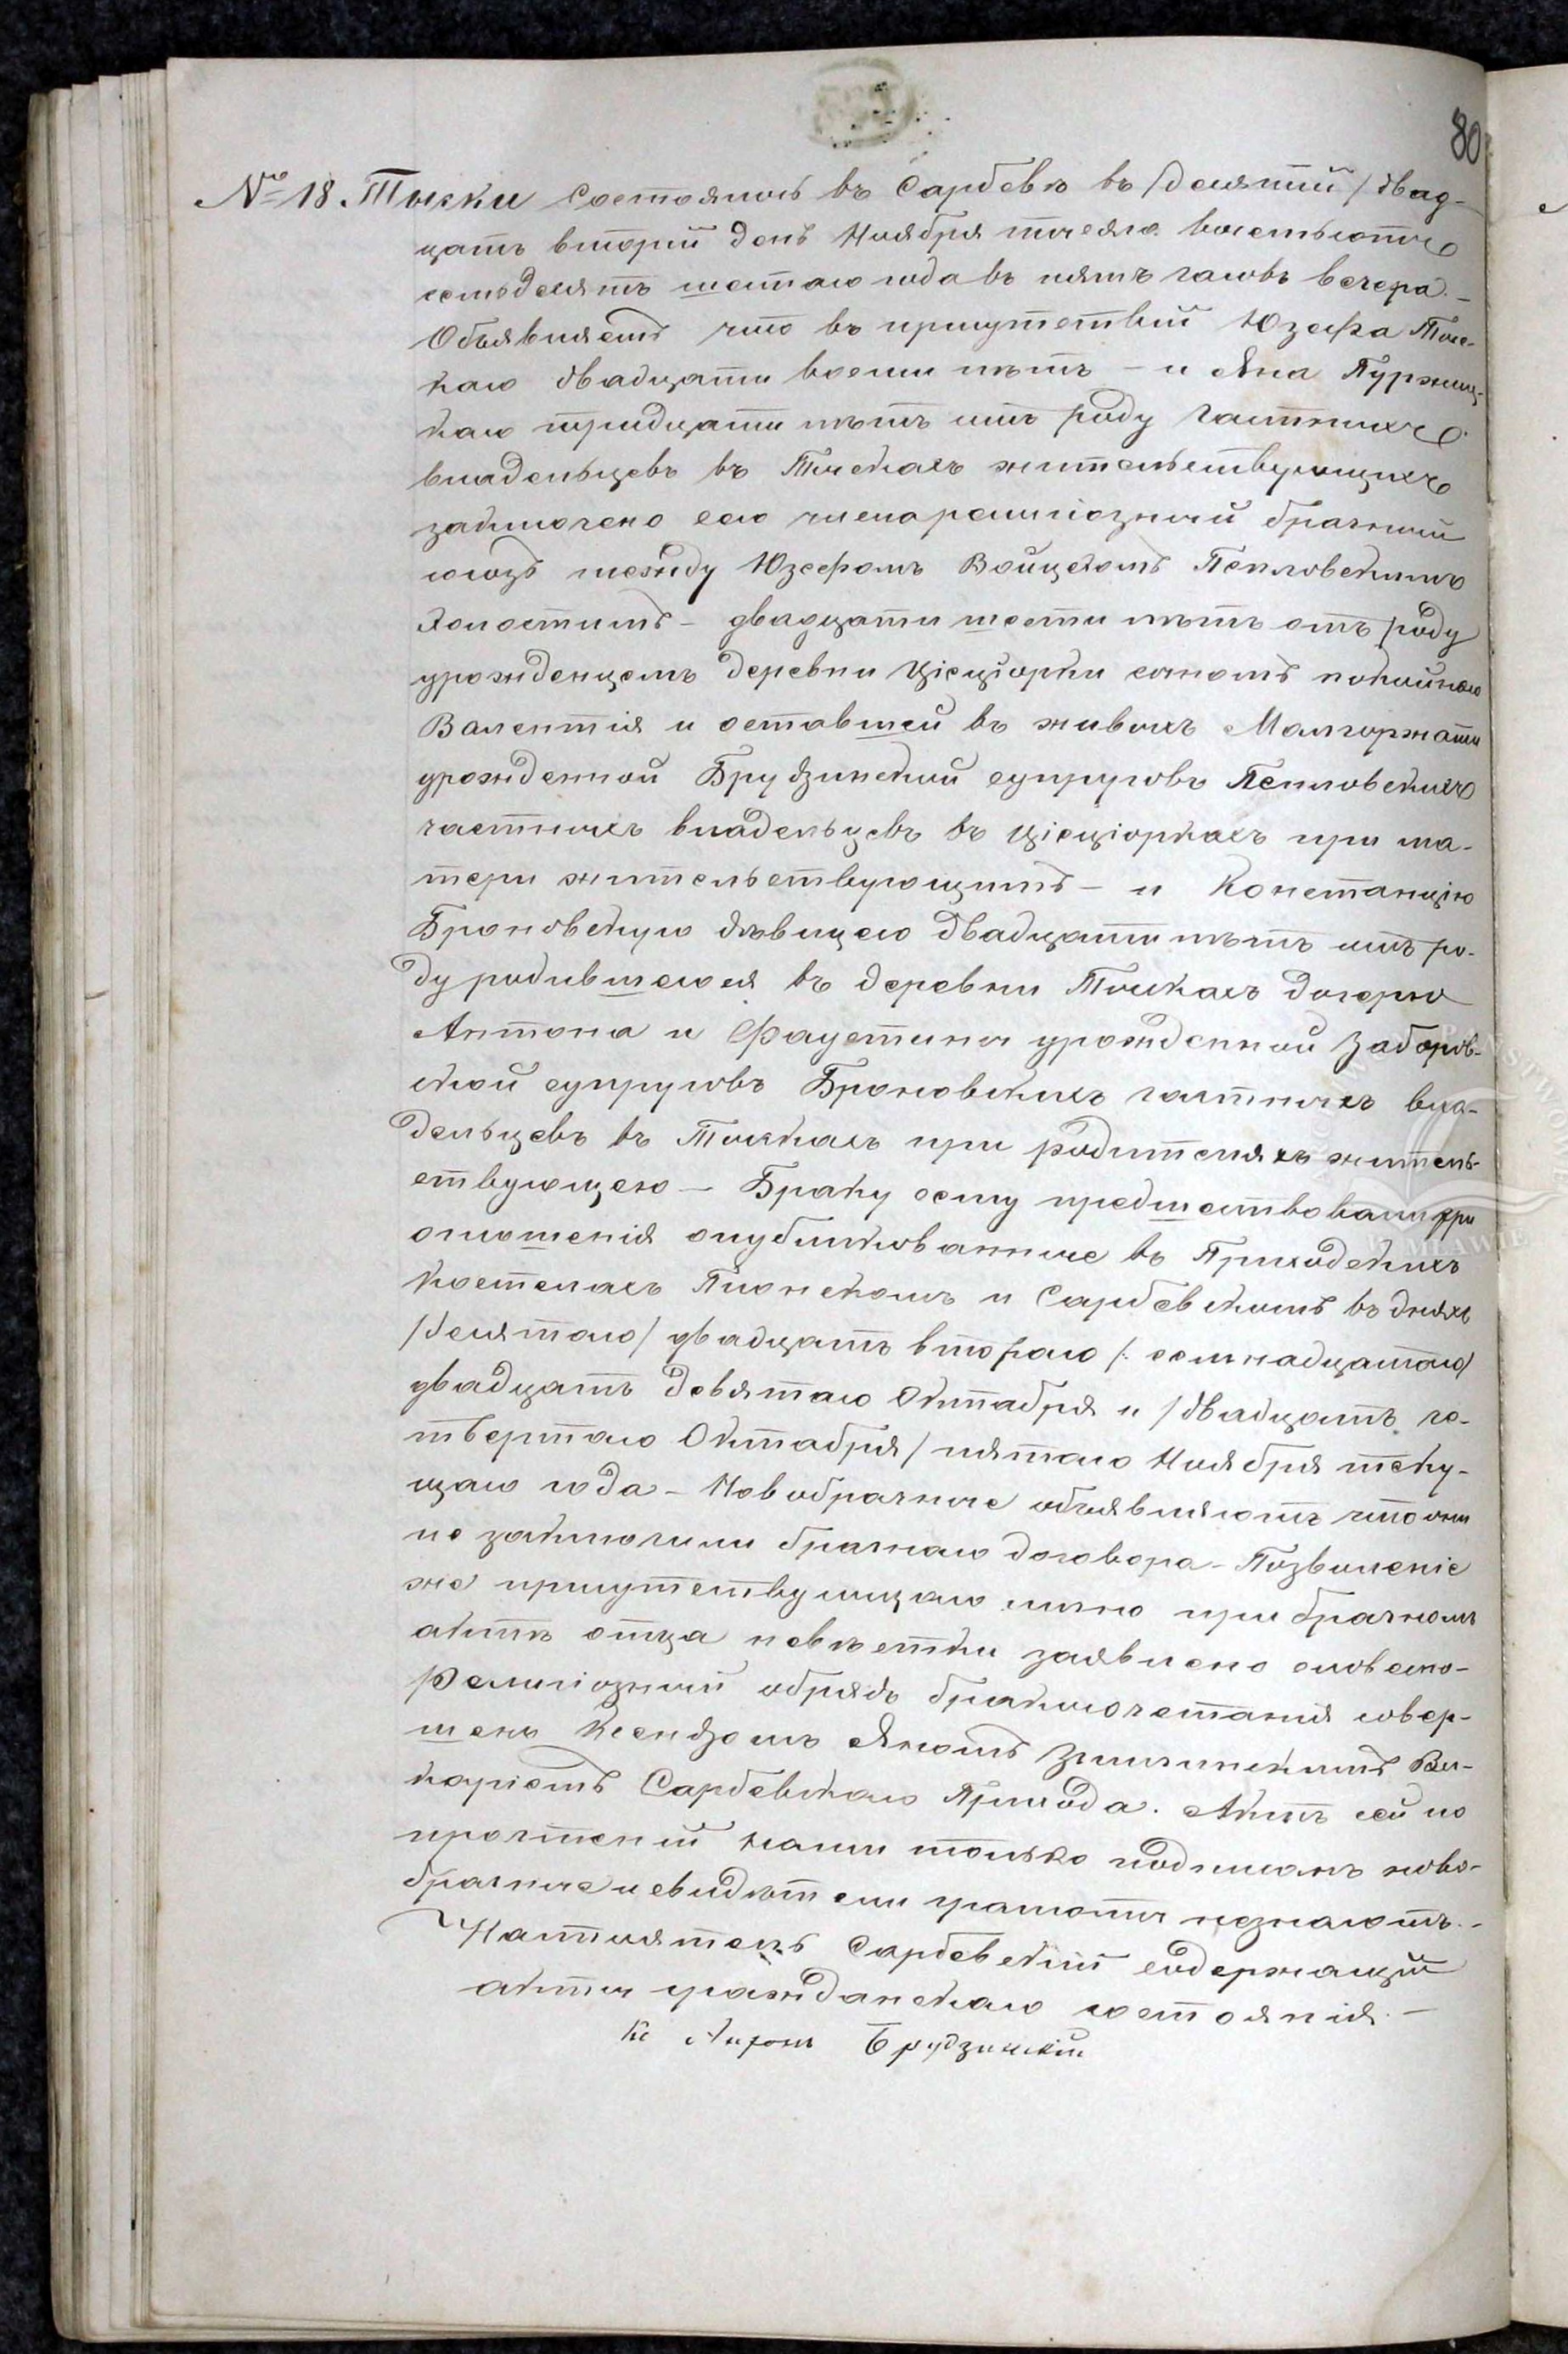 80
№ 18. Тыски Состоялось въ Сарбевѣ въ /десятый/ двад-
цать вторый день Ноября тысяча восемьсотъ
семьдесятъ шестаго года въ пять часовъ вечера. –
Объявляемъ что въ присутствіи Юзефа Тыс-
каго двадцати восьми лѣтъ – и Яна
каго тридцати лѣтъ отъ роду частныхъ
владельцевъ въ Тыскахъ жительствующихъ
заключено сего числа религіозный брачный
союзъ между Юзефомъ Войцехомъ Пепловскимъ
Холостымъ – двадцати шести лѣтъ отъ роду
урожденцемъ деревни Цісціорки сыномъ покойнаго
Валентія и оставшей въ живыхъ Малгоржаты
урожденной Брудзинской супруговъ Пепловскихъ
частныхъ владельцевъ въ Цісціоркахъ при ма-
тери жительствующимъ – и Констанцію
Броновскую дѣвицею двадцати лѣтъ отъ ро-
ду родившеюся въ деревни Тыскахъ дочерью
Антона и Фаустины урожденной Заборов-
ской супруговъ Броновскихъ частныхъ вла-
дельцевъ въ Тыскахъ при родителяхъ житель-
ствующею – Браку сему предшествовали три
оглошенія опубликованные въ Приходскихъ
Костелахъ Плонскомъ и Сарбевскомъ въ дняхъ
/десятаго/ двадцать втораго /: семнадцатаго/
двадцать девятаго Октабря и /двадцать че-
твертаго Октабря/ пятаго Ноября теку-
щаго года – Новобрачные объявляютъ что они
не заключили брачнаго договора – Позволеніе
же присутствующаго лично при брачномъ
актѣ отца невѣстки заявлено словесно –
Религіозный обрядъ бракосочетанія совер-
шенъ Ксендзомъ Яномъ Ви-
каріемъ Сарбевскаго Прихода. Актъ сей по
прочтеніи нами только подписанъ ново-
брачные и свидѣтели грамоты незнаютъ. –
Настоятель Сарбевскій содержащій
акты гражданскаго состоянія. –
Кс Антонъ Брудзинскій